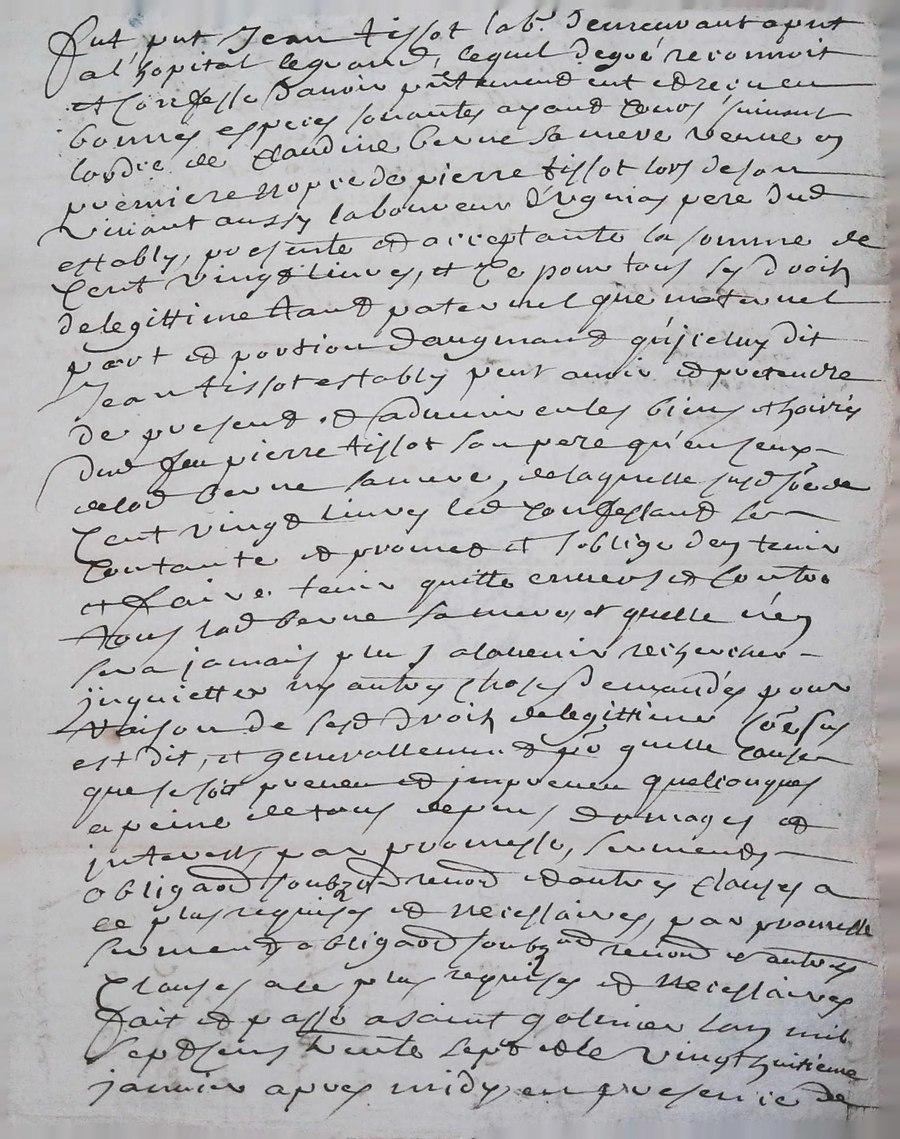 fut pnt Jean tissot labr. demeurant a pnt
a l'hopital legrand, lequel degré reconnoit
et Confesse d'avoir pntement eut et receu en
bonnes especes sonantes ayand Cours suivant
lordce de Claudine berne sa mere veuve en
premiere nopce de pierre tissot lors de son
vivant aussy laboureur d'ugnias pere dud
estably, presente et acceptante la somme de
Cent vingt livres, et Ce pour tous ses droits
de legittime tand paternel que maternel
part et portion daugmand qu'jceluy dit
Jean tissot estably peut avoir et pretendre
de presend et a advenir en les biens et hoiries
dud feu pierre tissot son pere qu'en ceux
de lad berne sa mere, de laquelle susd soe de
Cent vingt livres led Confessand se
Contante et promed et s'oblige den tenir
et faire tenir quitte envers et Contre
tous lad berne sa mere, et quelle n'en
sera jamais plus a ladvenir rechercher
jnquietter ny autres choses demandés pour
raison de sesd droits de legittime Coe sus
est dit, et generallement pr quelle cause
que se soit preveu et jmpreveu quelconques
a peine de tous depens domages et
jnterests, par promesse, serments
obligaon soubzon renoon et autres Clauses a
ce plus requises et necessaires, par promesse
serment obligaon soubzon renoon et autres
Clauses a ce plus requises et necessaires
fait et passé a saint galmier lan mil
sept Cens trente sept et le vingt huitieme
janvier apres midy en presence de